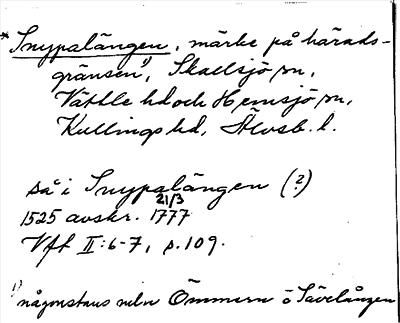 * Snypalängen, märke på härads-
gränsen¹⁾, Skallsjö sn,
Vättle hd och Hemsjö sn,
Kullings hd, Älvsb. l.
så i Snypalängen (?)
1525 avskr. 21/3 1777
Vft II:6-7, s. 109.
¹⁾ någonstans mln Ömmern o Sävelången